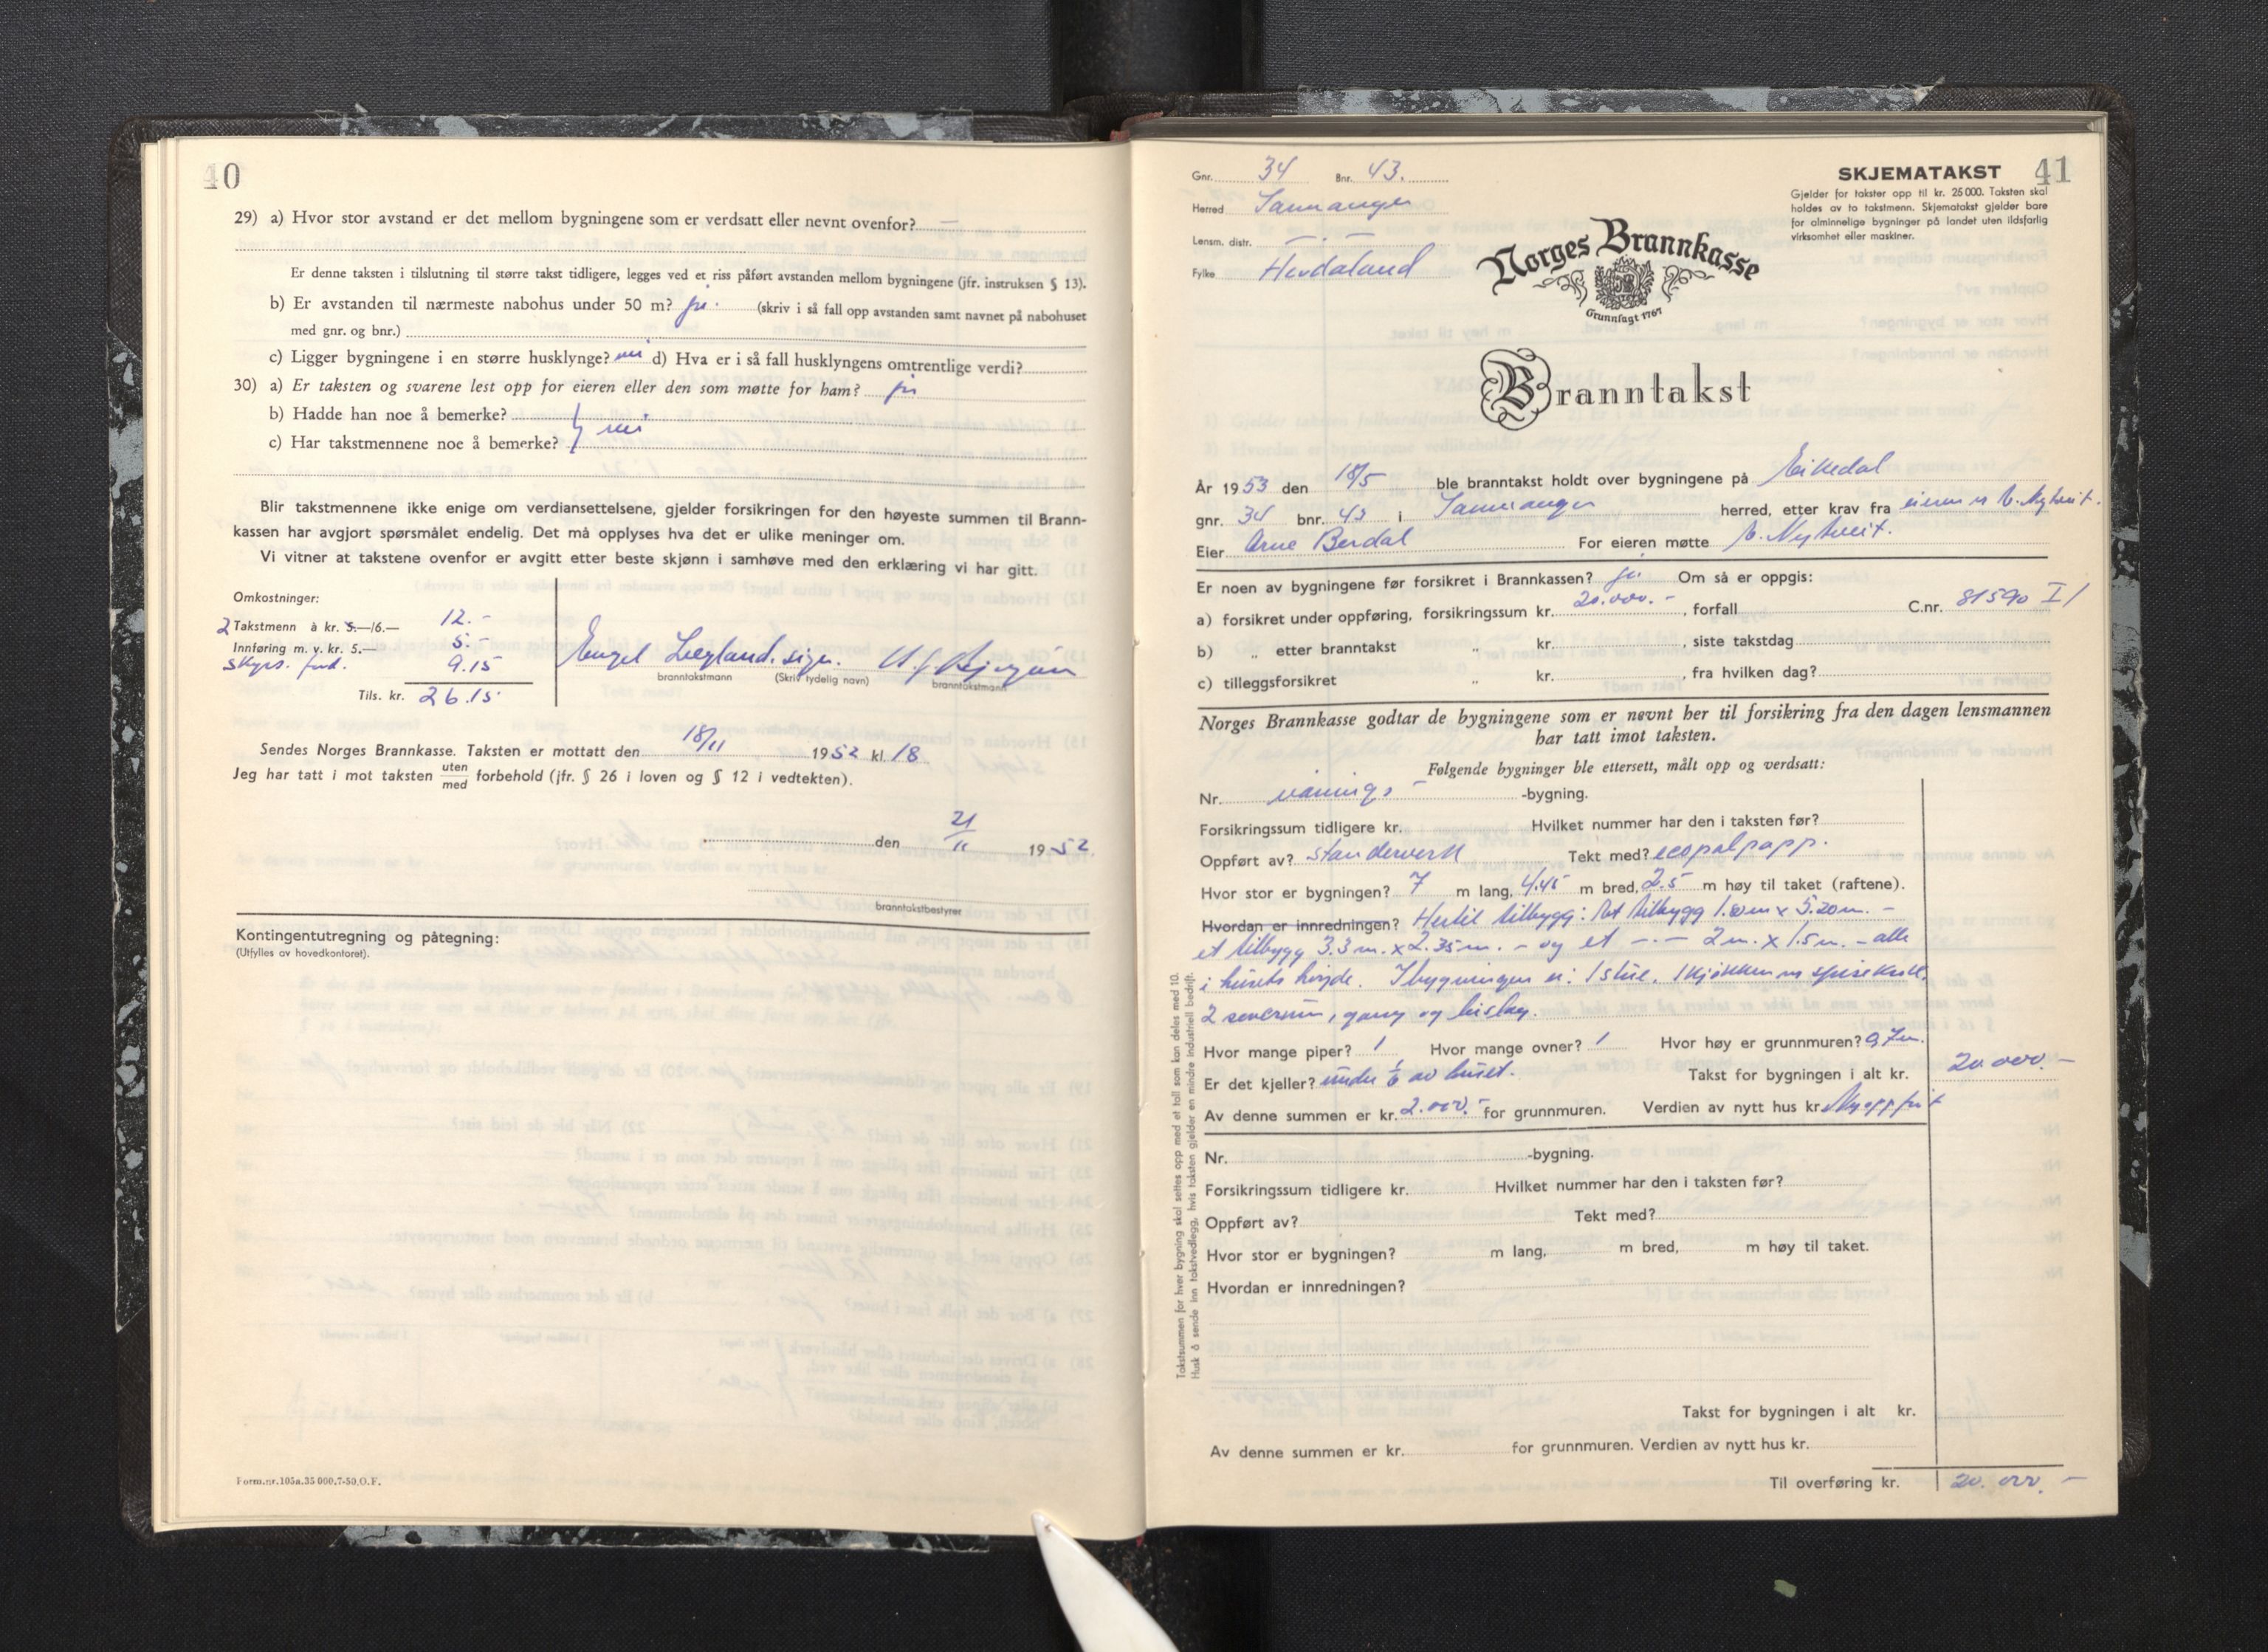 40
29) a) Hvor stor avstand er det mellom bygningene som er verdsatt eller nevnt ovenfor? —
Er denne taksten i tilslutning til større takst tidligere, legges ved et riss påført avstanden mellom bygningene (jfr. instruksen § 13).
b) Er avstanden til nærmeste nabohus under 50 m? ja. (skriv i så fall opp avstanden samt navnet på nabohuset
med gnr. og bnr.)
c) Ligger bygningene i en større husklynge? nei d) Hva er i så fall husklyngens omtrentlige verdi?
30) a) Er taksten og svarene lest opp for eieren eller den som møtte for ham? ja
b) Hadde han noe å bemerke?
c) Har takstmennene noe å bemerke? } nei
Blir takstmennene ikke enige om verdiansettelsene, gjelder forsikringen for den høyeste summen til Brann-
kassen har avgjort spørsmålet endelig. Det må opplyses hva det er ulike meninger om.
Vi vitner at takstene ovenfor er avgitt etter beste skjønn i samhøve med den erklæring vi har gitt.
Omkostninger:
2 Takstmenn à kr. 5.—/6.— 12.-
Innføring m. v. kr. 5.— 5.-
Skyss. 9.15
Tils. kr. 26.15
Engel Lægland. sign.
branntakstmann (Skriv tydelig navn) branntakstmann
Sendes Norges Brannkasse. Taksten er mottatt den 18/11 1952 kl. 18
Jeg har tatt i mot taksten uten/med forbehold (jfr. § 26 i loven og § 12 i vedtekten).
den 21/11 1952.
branntakstbestyrer
Kontingentutregning og påtegning:
(Utfylles av hovedkontoret).
Form.nr.105a.35 000.7-50.O.F.
Gnr. 34 Bnr. 43.
Herred Samnanger
Lensm. distr. — " —
Fylke Hordaland
SKJEMATAKST 41
Gjelder for takster opp til kr. 25 000. Taksten skal
holdes av to takstmenn. Skjematakst gjelder bare
for alminnelige bygninger på landet uten ildsfarlig
virksomhet eller maskiner.
Norges Brannkasse
Grunnlagt 1767
Branntakst
År 1953 den 18/5 ble branntakst holdt over bygningene på Eikedal
gnr. 34 bnr. 43 i Samnanger herred, etter krav fra eieren v. Nytveit.
Eier Arne Berdal For eieren møtte Nytveit.
Er noen av bygningene før forsikret i Brannkassen? ja Om så er oppgis:
a) forsikret under oppføring, forsikringssum kr. 20.000.-, forfall C.nr. 81590 I/
b) „ etter branntakst „ kr. , siste takstdag
c) tilleggsforsikret „ kr. , fra hvilken dag?
Norges Brannkasse godtar de bygningene som er nevnt her til forsikring fra den dagen lensmannen
har tatt imot taksten.
Følgende bygninger ble ettersett, målt opp og verdsatt:
Nr. vånings -bygning.
Forsikringssum tidligere kr. Hvilket nummer har den i taksten før?
Oppført av? standerverk Tekt med? ecopalpapp.
Hvor stor er bygningen? 7 m lang, 4.45 m bred, 2.5 m høy til taket (raftene).
Hvordan er innredningen? Hertil tilbygg: Et tilbygg 1.80 m x 5.20 m. -
et tilbygg 3.3 m. x 2.35 m. - og et -.- 2 m. x 1.5 m. - alle
i husets høyde. I bygningen er: 1 stue, 1 kjøkken m spisekrok,
2 soverum, gang og bislag.
Hvor mange piper? 1 Hvor mange ovner? 1 Hvor høy er grunnmuren? 0,7 m.
Er det kjeller? under 1/6 av huset. Takst for bygningen i alt kr. 20.000.-
Av denne summen er kr. 2.000.- for grunnmuren. Verdien av nytt hus kr. Nyoppført
Nr. -bygning.
Forsikringssum tidligere kr. Hvilket nummer har den i taksten før?
Oppført av? Tekt med?
Hvor stor er bygningen? m lang, m bred, m høy til taket.
Hvordan er innredningen?
Takst for bygningen i alt kr.
Av denne summen er kr. for grunnmuren. Verdien av nytt hus kr.
Til overføring kr. 20.000.-
Takstsummen for hver bygning skal settes opp med et tall som kan deles med 10.
Husk å sende inn takstvedlegg, hvis taksten gjelder en mindre industriell bedrift.